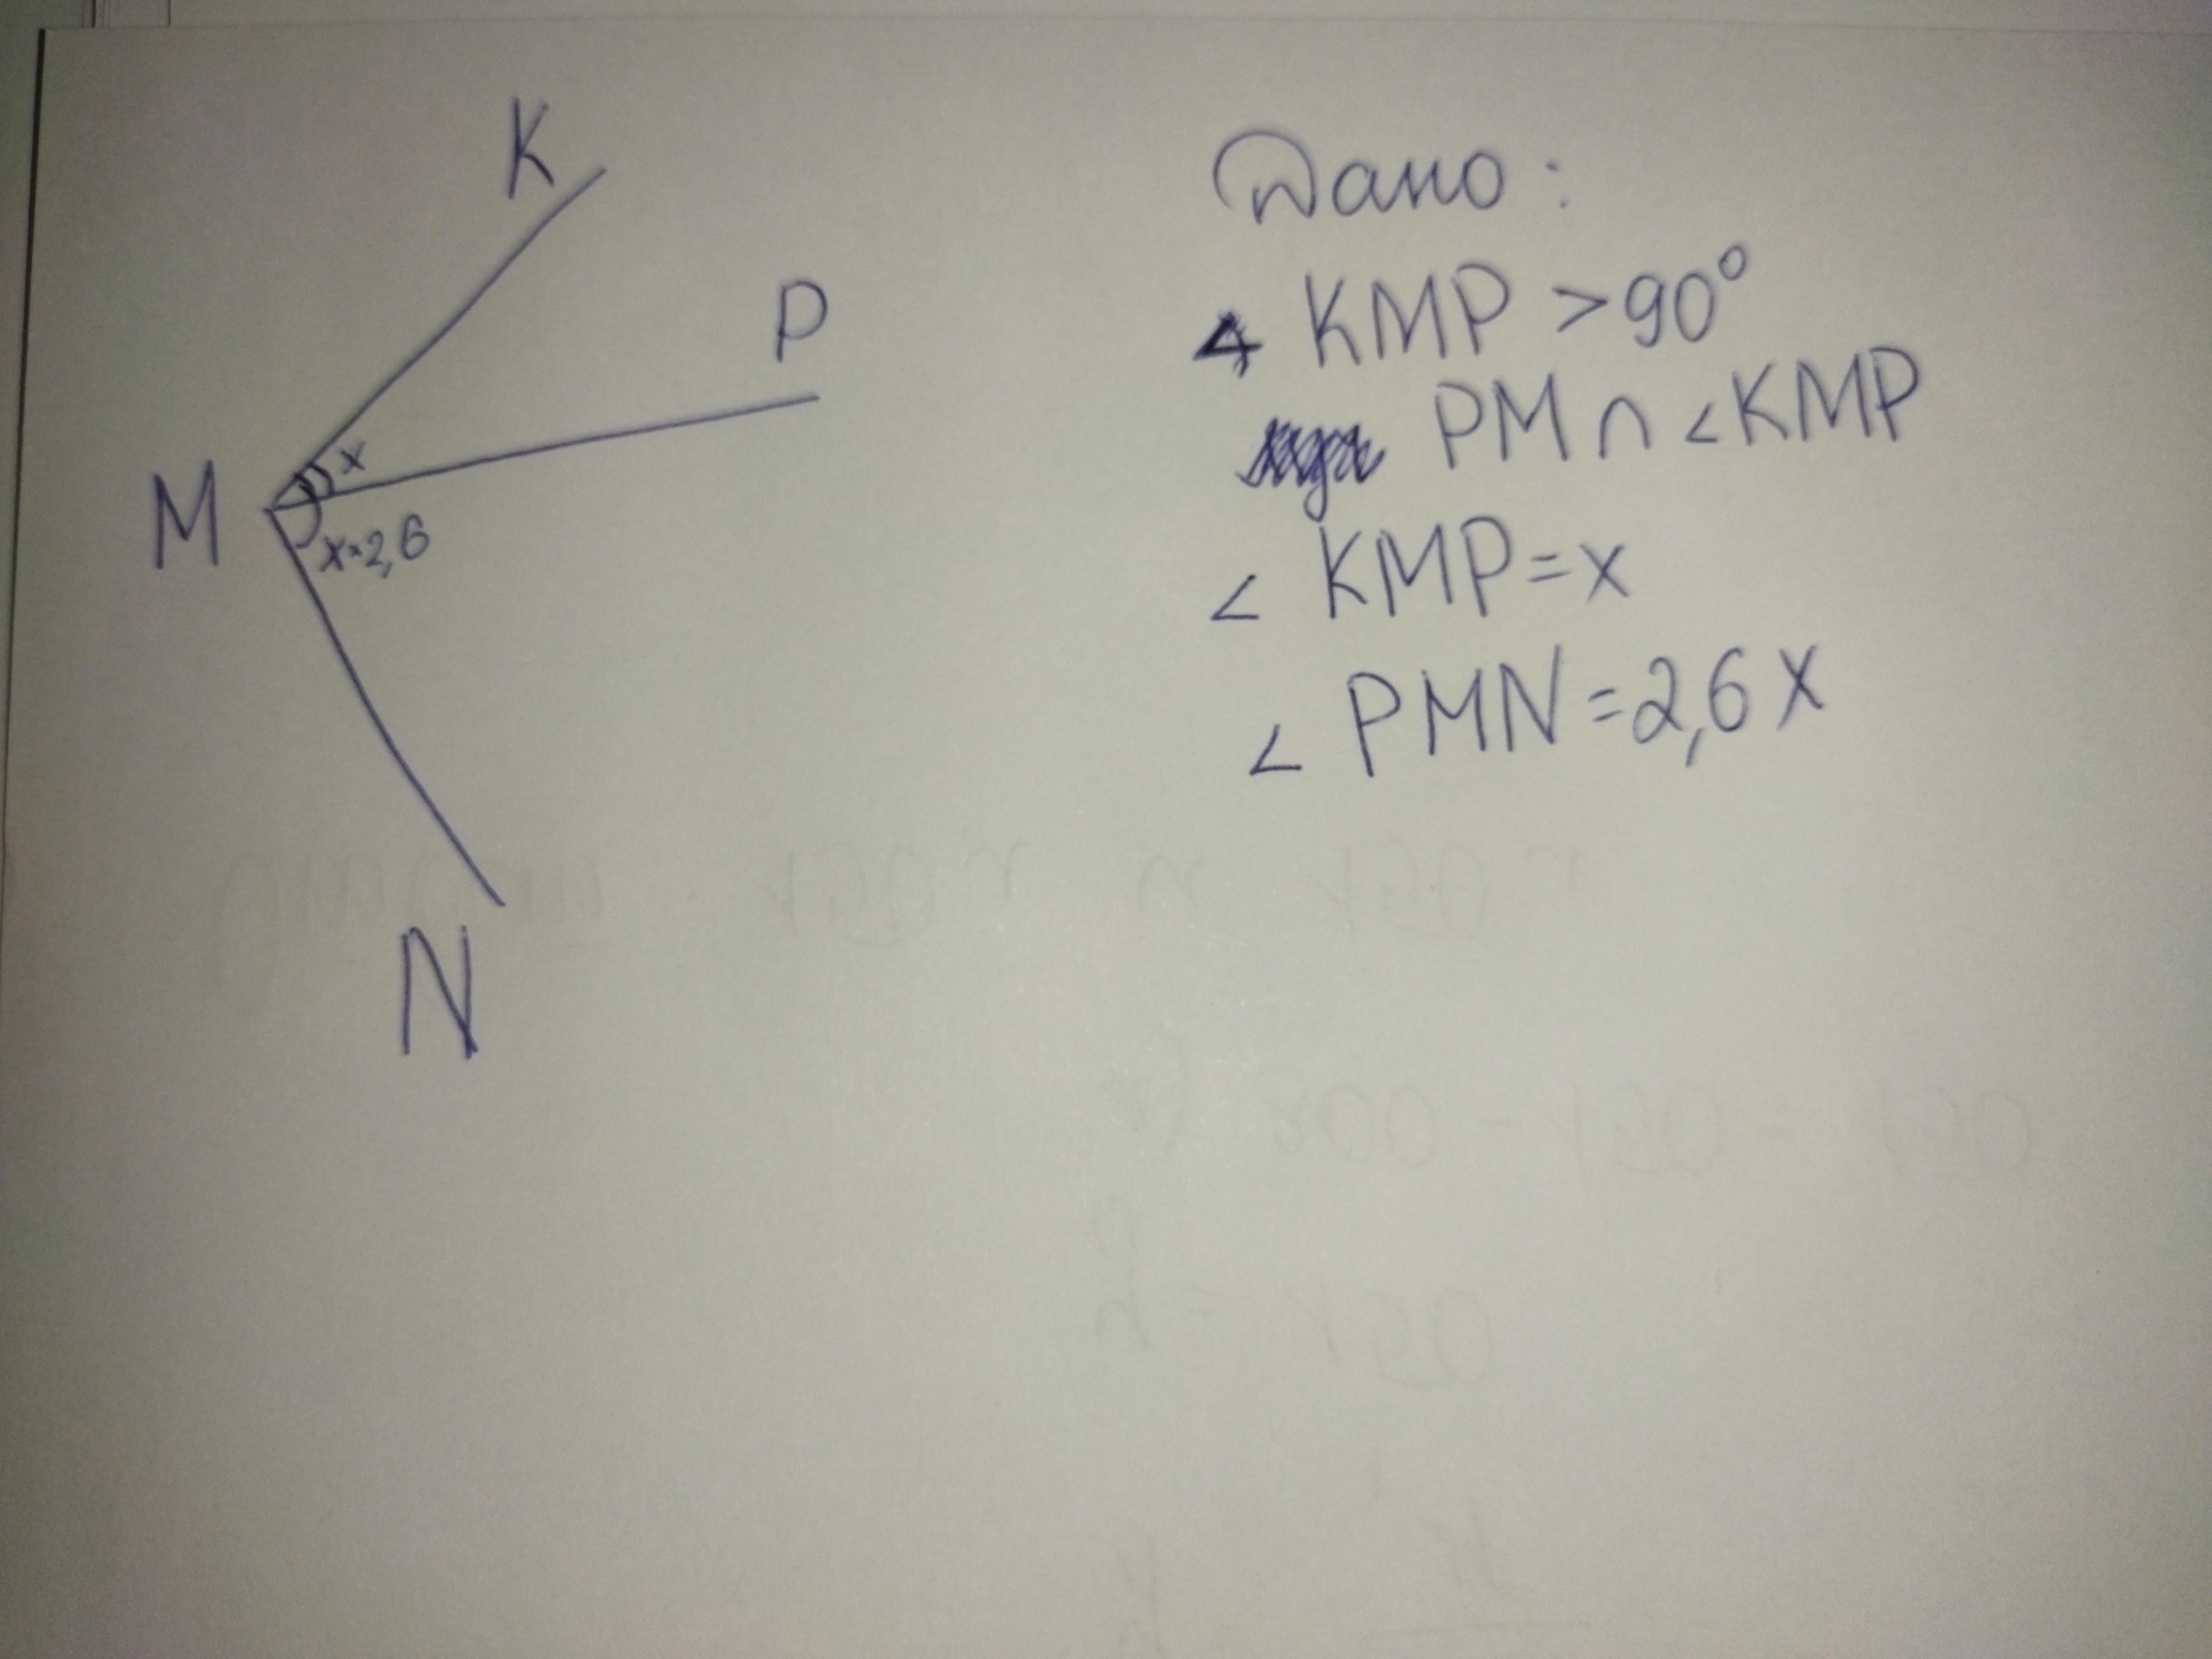 K
P
x
M
x·2,6
N
Дано:
∠ KMP > 90°
PM ∩ ∠KMP
∠ KMP = x
∠ PMN = 2,6 x